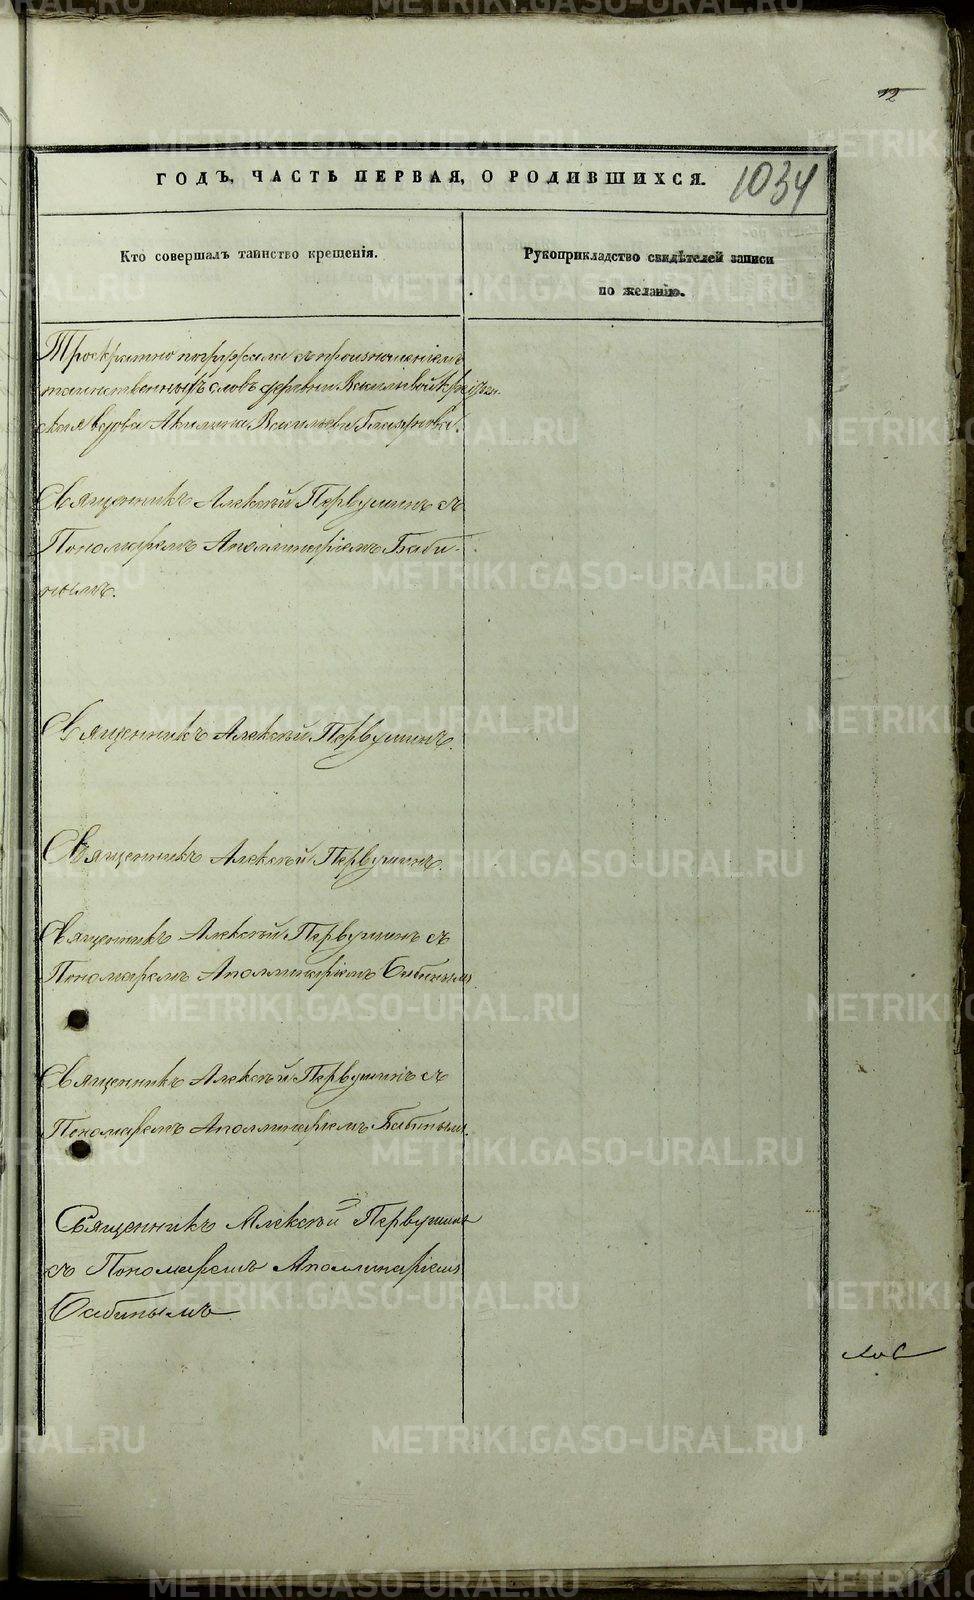 12
ГОДЪ, ЧАСТЬ ПЕРВАЯ, О РОДИВШИХСЯ.
1034
Кто совершалъ таинство крещенія.
Рукоприкладство свидѣтелей записи
по желанію.
Троекратно погружала съ произношеніемъ
таинственныхъ словъ деревни
вдова Акилина Васильева
Священникъ Алексѣй Первушинъ съ
Пономаремъ Аполлинаріемъ Баби-
нымъ.
Священникъ Алексѣй Первушинъ.
Священникъ Алексѣй Первушинъ.
Священникъ Алексѣй Первушинъ съ
Пономаремъ Аполлинаріемъ Бабинымъ
Священникъ Алексѣй Первушинъ съ
Пономаремъ Аполлинаріемъ Бабинымъ.
Священникъ Алексѣй Первушинъ
съ Пономаремъ Аполлинаріемъ
Бабинымъ.
METRIKI.GASO-URAL.RU